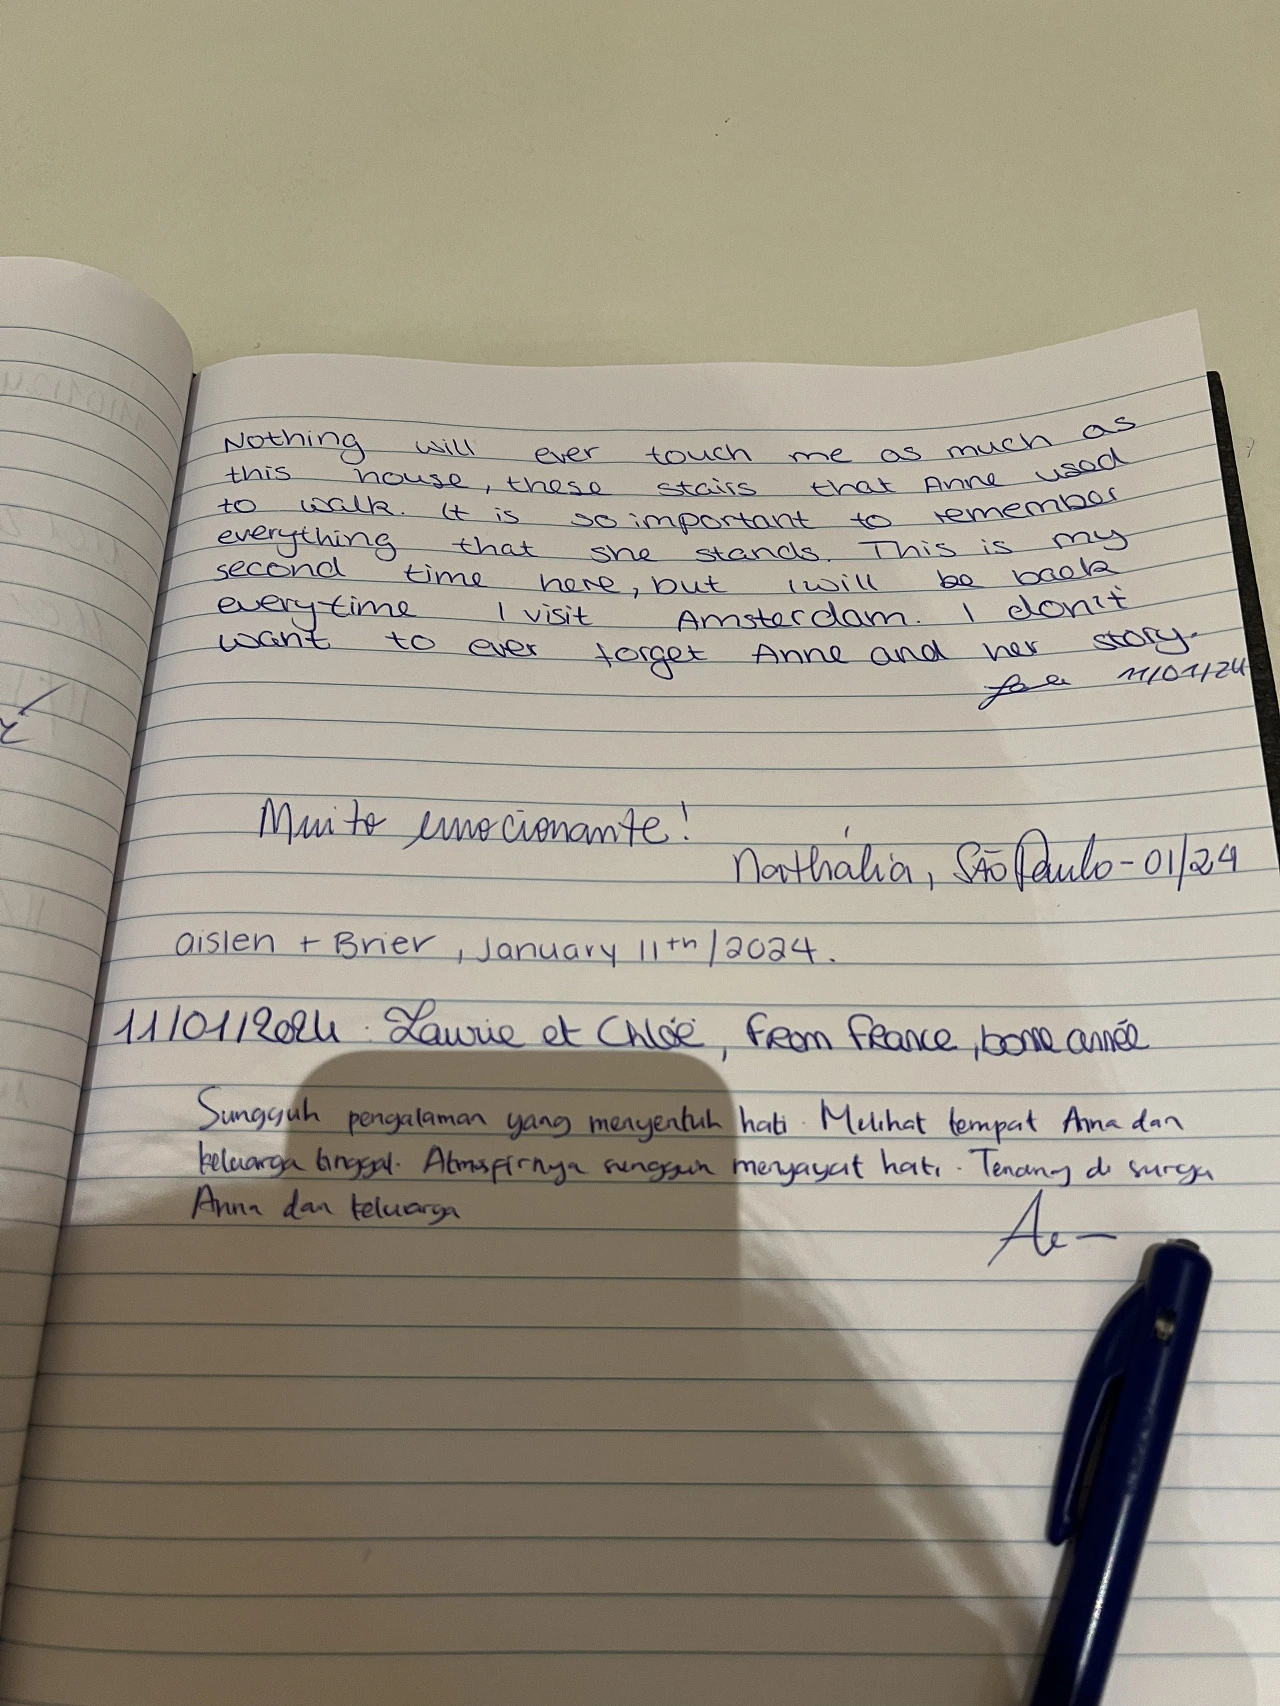 Nothing will ever touch me as much as
this house, these stairs that Anne used
to walk. It is so important to remember
everything that she stands. This is my
second time here, but I will be back
everytime I visit Amsterdam. I don't
want to ever forget Anne and her story.
11/01/24
Muito emocionante!
Nathália, São Paulo - 01/24
aislen + Brier, January 11th/2024.
11/01/2024: Laurie et Chloé, From France, bonne année
Sungguh pengalaman yang menyentuh hati. Melihat tempat Anna dan
keluarga tinggal. Atmosfirnya sungguh menyayat hati. Tenang di surga
Anna dan keluarga